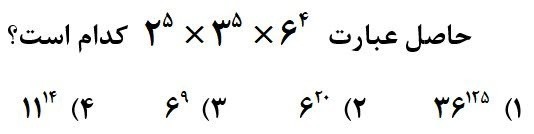 حاصل عبارت ۲^۵ × ۳^۵ × ۶^۴ کدام است؟
۱) ۳۶^۱۲۵ ۲) ۶^۲۰ ۳) ۶^۹ ۴) ۱۱^۱۴